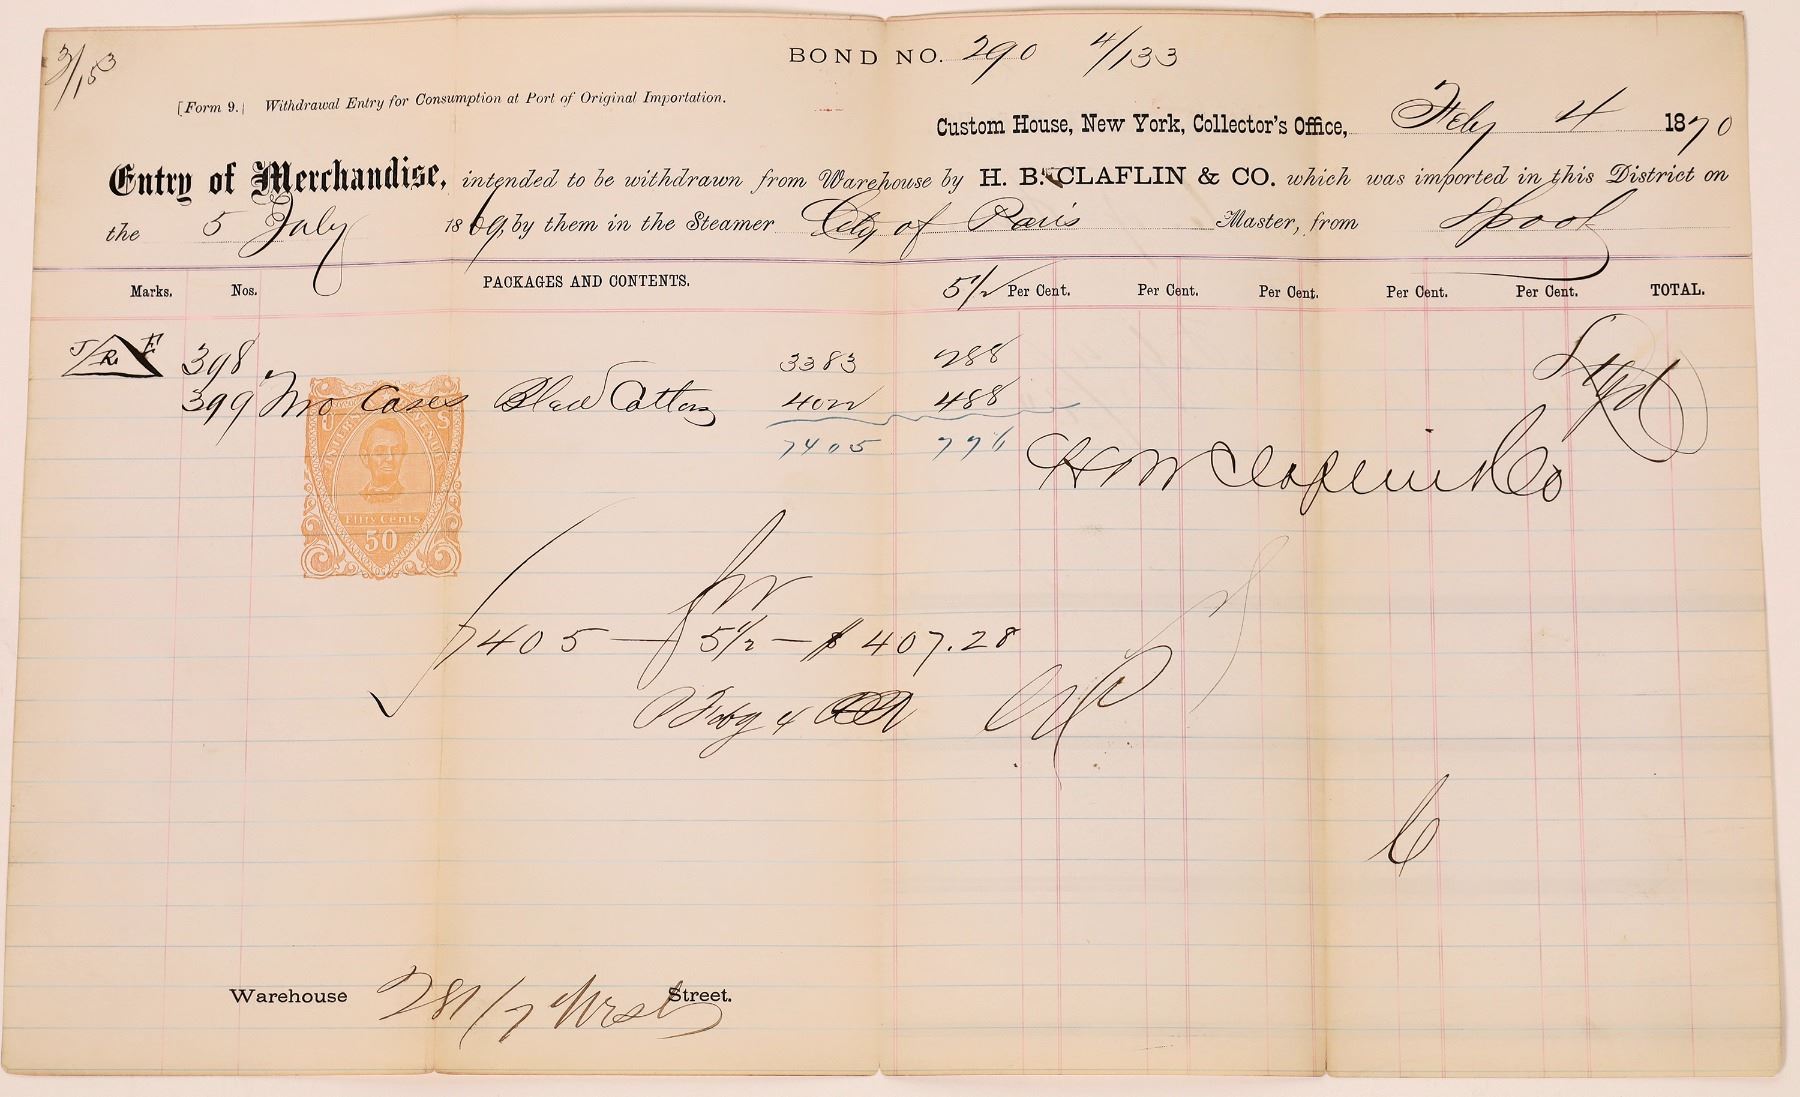 3/153
BOND NO. 290 4/133
[Form 9.] Withdrawal Entry for Consumption at Port of Original Importation.
Custom House, New York, Collector's Office, Feby 4 1870
Entry of Merchandise, intended to be withdrawn from Warehouse by H. B. CLAFLIN & CO. which was imported in this District on
the 5 July 1869, by them in the Steamer City of Paris Master, from Lpool
Marks. Nos. PACKAGES AND CONTENTS. 5 1/2 Per Cent. Per Cent. Per Cent. Per Cent. Per Cent. TOTAL.
J R E 398 3383 288
399 Two Cases Black Cottons 4022 488
7405 776
U S
INTERNAL REVENUE
Fifty Cents
50
H B Claflin & Co
7405 — 5 1/2 — $ 407.28
Feby 4
Warehouse 281/7 West Street.